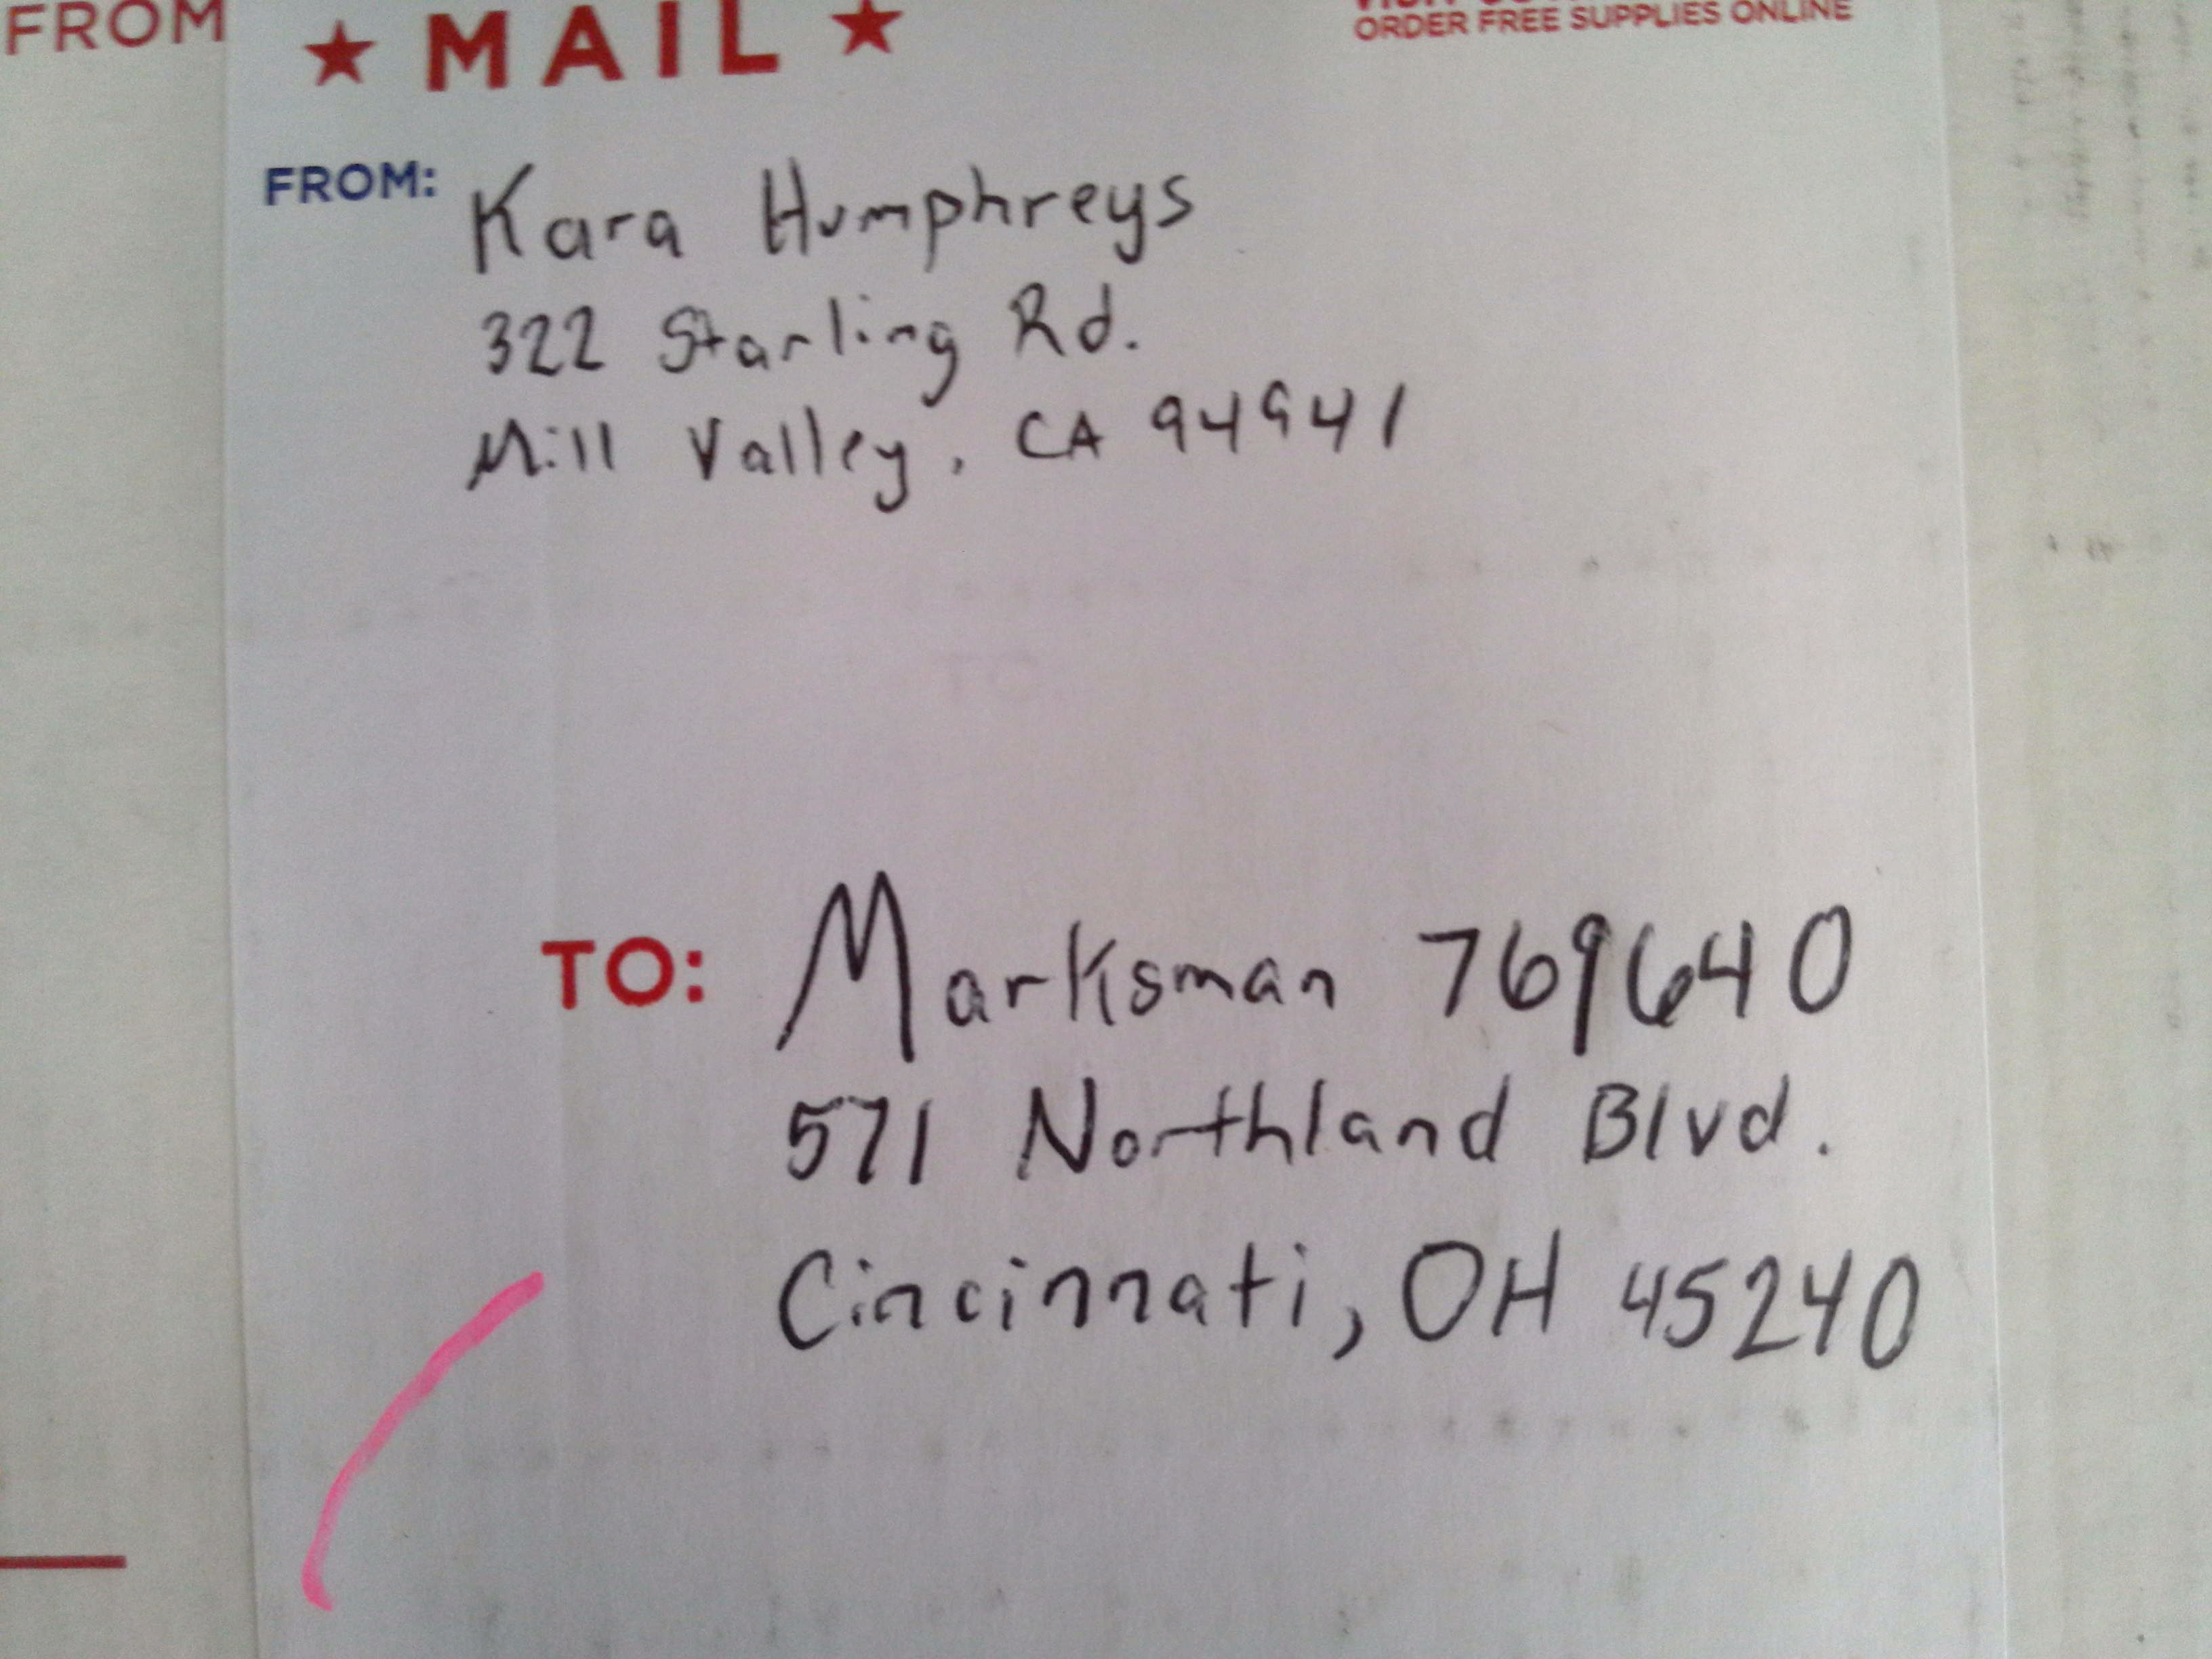 FROM
★ MAIL ★
ORDER FREE SUPPLIES ONLINE
FROM: Kara Humphreys
322 Starling Rd.
Mill Valley, CA 94941
TO:
TO: Marksman 769640
571 Northland Blvd.
Cincinnati, OH 45240